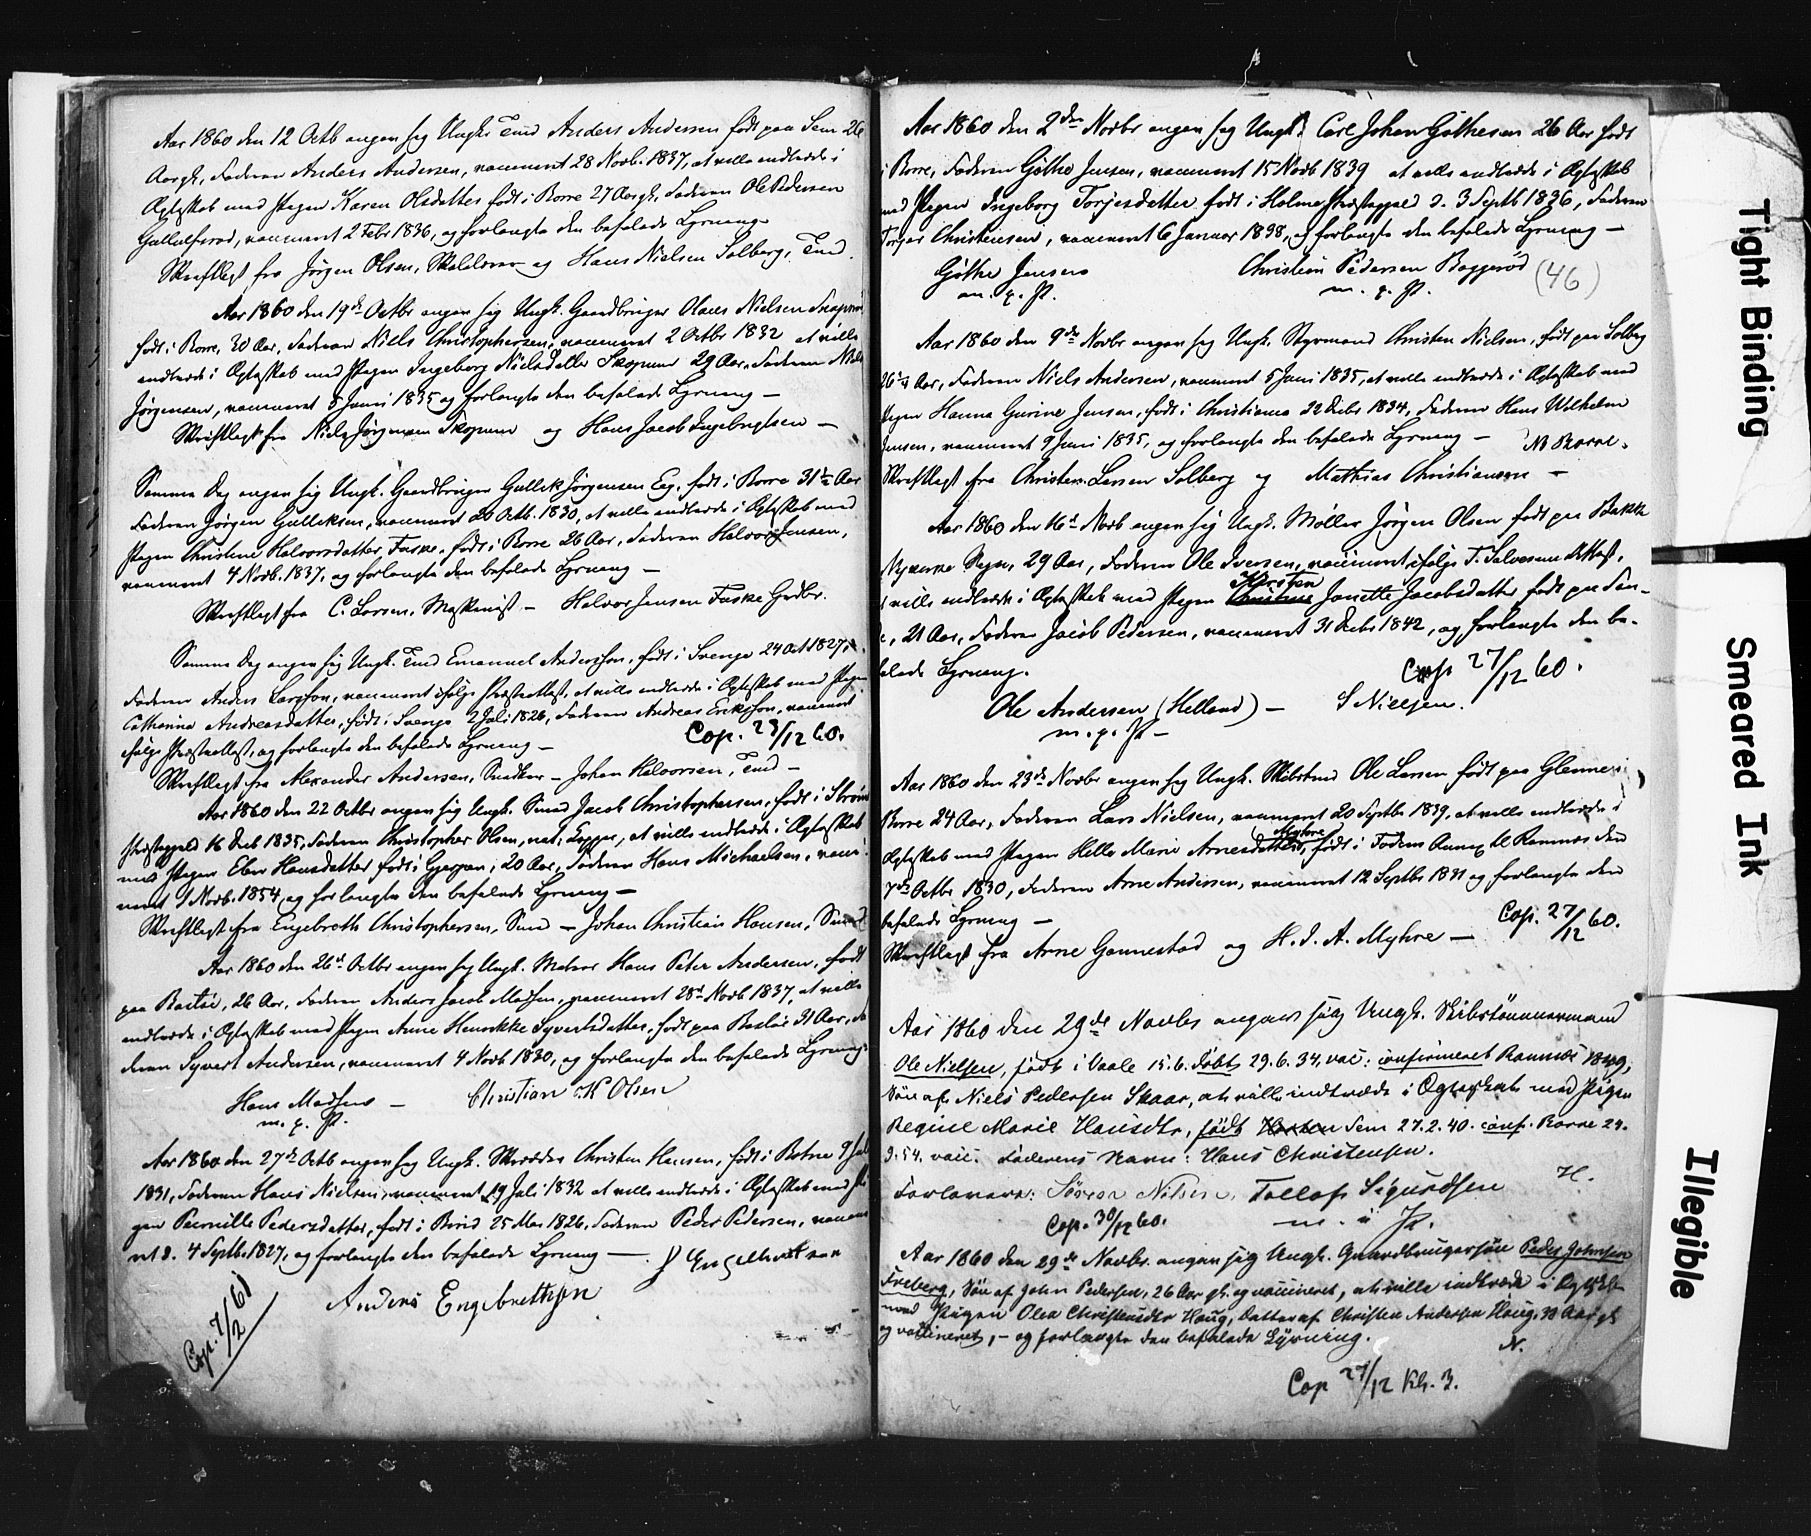 Aar 1860 den 12 Octb angav sig Ungk. Tmd Anders Andersen født paa Sem 26
Aar gl., Faderen Anders Andersen, vaccineret 28 Novb. 1837, at ville indtræde i
Ægteskab med Pigen Karen Olsdatter født i Borre 27 Aar gl., Faderen Ole Pedersen
Gullulfsrød, vaccineret 2 Febr 1836, og forlangte den befalede Lysning.
Skriftligt fra Jørgen Olsen, og Hans Nielsen Solberg, Tmd.
Aar 1860 den 19de Octbr angav sig Ungk. Gaardbruger Olaus Nielsen
født i Borre, 30 Aar, Faderen Niels Christophersen, vaccineret 2 Octbr 1832 at ville
indtræde i Ægteskab med Pigen Ingeborg Nielsdatter Skopum 29 Aar, Faderen Niels
Jørgensen, vaccineret 5 Juni 1835 og forlangte den befalede Lysning —
Skriftligt fra Niels Jørgensen Skopum og Hans Jacob Ingebrigtsen —
Samme Dag angav sig Ungk. Gaardbruger Gullik Jørgensen Eeg, født i Borre 31½ Aar
Faderen Jørgen Gulliksen, vaccineret 20 Octb. 1830, at ville indtræde i Ægteskab med
Pigen Christine Halvorsdatter, Faske, født i Borre 26 Aar, Faderen Halvor Jensen,
vaccineret 4 Novb. 1837, og forlangte den befalede Lysning —
Skriftligt fra C. Larsen, Maskinist — Halvor Jensen Faske Grdbr.
Samme Dag angav sig Ungk. Tmd Emanuel Andersson, født i Sverge 24 Oct 1827,
Faderen Anders Larsson, vaccineret ifølge Præsteattest, at ville indtræde i Ægteskab med Pigen
Catharina Andreasdatter, født i Sverge 2 Juli 1826, Faderen Andreas Eriksson, vaccineret
ifølge Præsteattest, og forlangte den befalede Lysning — Cop. 23/12 60.
Skriftligt fra Alexander Andersen, Snedker — Johan Halvorsen, Tmd —
Aar 1860 den 22 Octbr angav sig Ungk. Smed Jacob Christophersen, født i Strøms
Præstegjeld 16 Decb 1835, Faderen Christopher Olsen, nat. Kopper, at ville indtræde i Ægteskab
med Pigen Elen Hansdatter født i Gjerpen, 20 Aar, Faderen Hans Michaelsen, vacci-
neret 1 Novb. 1854, og forlangte den befalede Lysning —
Skriftligt fra Engebreth Christophersen, Smed — Johan Christian Hansen, Smed
Aar 1860 den 26de Octbr angav sig Ungk. Matros Hans Peter Andersen, født
paa Bastøe, 26 Aar, Faderen Anders Jacob Madsen, vaccineret 28de Novb 1837, at ville
indtræde i Ægteskab med Pigen Anne Henrikke Syvertsdatter, født paa Bastøe 31 Aar, Fa-
deren Syvert Andersen, vaccineret 4 Novb 1830, og forlangte den befalede Lysning.
Hans Madsen — Christian K Olsen
m. p. P.
Aar 1860 den 27de Octb angav sig Ungk. Skrædder Christen Hansen, født i Botne 9 Juli
1831, Faderen Hans Nielsen, vaccineret 19 Juli 1832 at ville indtræde i Ægteskab med Pi-
gen Pernille Pedersdatter, født i Biri 25 Mai 1826, Faderen Peder Pedersen, vaccine-
ret d. 4 Septb. 1827, og forlangte den befalede Lysning —
Anders Engebrethsen
Cop. 7/2 61
Aar 1860 den 2den Novbr angav sig Ungk. Carl Johan Gøthesen 26 Aar født
i Borre, Faderen Gøthe Jensen, vaccineret 15 Novb 1839 at ville indtræde i Ægteskab
med Pigen Ingeborg Torjesdatter født i Holme Præstegjeld d. 3 Septb 1836, Faderen
Torger Christensen, vaccineret 6 Januar 1838, og forlangte den befalede Lysning —
Gøthe Jensen Christian Pedersen Baggerød (46)
m. p. P. m. p. P.
Aar 1860 den 9de Novbr angav sig Ungk. Styrmand Christen Nielsen, født paa Solberg
Aar, Faderen Niels Andersen, vaccineret 5 Juni 1835, at ville indtræde i Ægteskab med
Pigen Hanna Gurine Jensen, født i Christiania 22 Decbr 1834, Faderen Hans Wilhelm
Jensen, vaccineret 9 Juni 1835, og forlangte den befalede Lysning — NB Borre.
Skriftligt fra Christen Larsen Solberg og Mathias Christiansen —
Aar 1860 den 16de Novb angav sig Ungk. Møller Jørgen Olsen født paa Bakke
Sogn, 29 Aar, Faderen Ole Iversen, vaccineret ifølge T. Salvesens Attest,
at ville indtræde i Ægteskab med Pigen Christine Kirsten Janette Jacobsdatter født paa
21 Aar, Faderen Jacob Pedersen, vaccineret 31 Decbr 1842, og forlangte den be-
falede Lysning. Cop. 27/12 60.
Ole Andersen (Helland) — S Nielsen.
m. p. P. —
Aar 1860 den 23de Novbr angav sig Ungk. Skibstmd Ole Larsen født paa Glenne i
Borre 24 Aar, Faderen Lars Nielsen, vaccineret 20 Septbr 1839, at ville indtræde i
Ægteskab med Pigen Helle Marie Arnesdatter Myhre, født i Fodens Annex til Ramnæs den
7de Octbr 1830, Faderen Arne Andersen, vaccineret 12 Septbr 1831 og forlangte den
befalede Lysning — Cop. 27/12 60.
Skriftligt fra Arne Gannestad og H. I. A. Myhre —
Aar 1860 den 29de Novbr angav sig Ungk. Skibstømmermand
Ole Nielsen, født i Vaale 15.6. døbt 29.6.34, vacc: confirmeret Ramnæs 1849,
Søn af Niels Pedersen Skaar, at ville indtræde i Ægteskab med Pigen
Regine Marie Hansdtr, født Horten Sem 27.2.40. conf. Borre 24.
9.54. vacc. Faderens Navn: Hans Christensen.
Forlovere: Søren Nilsen, Tollof Sigurdsen H.
Cop. 30/12 60. m. i P.
Aar 1860 den 29de Novbr. angav sig Ungk. Gaardbrugersøn Peder Johnsen
Freberg, Søn af John Pedersen, 26 Aar gl. og vaccineret, at ville indtræde i Ægtskb
med Pigen Olea Christensdtr Haug, Datter af Christen Andersen Haug, 30 Aar gl
og vaccineret, – og forlangte den befalede Lysning. N.
Cop 27/12 Kl. 3.
Tight Binding
Smeared Ink
Illegible